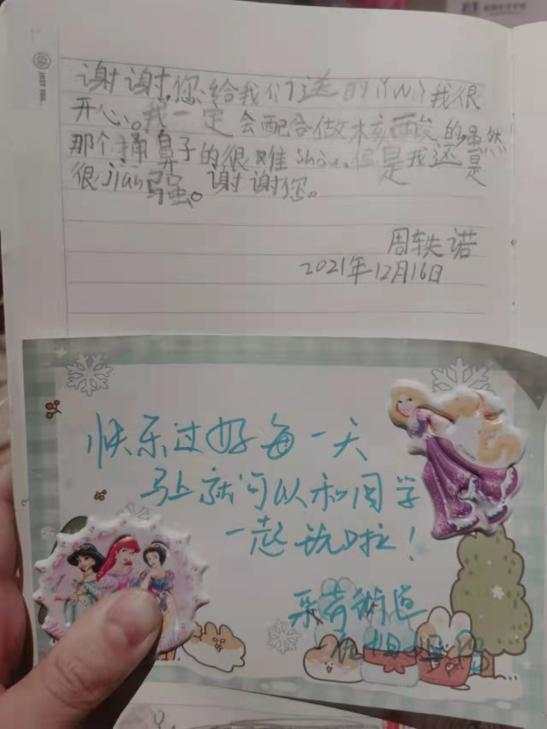 谢谢您给我们送的li wù我很
开心。我一定会配合做核酸的虽然
那个捅鼻子的很难shòu,但是我还是
很jian强。谢谢您。
周轶诺
2021年12月16日
快乐过好每一天
马上就可以和同学
一起玩啦!